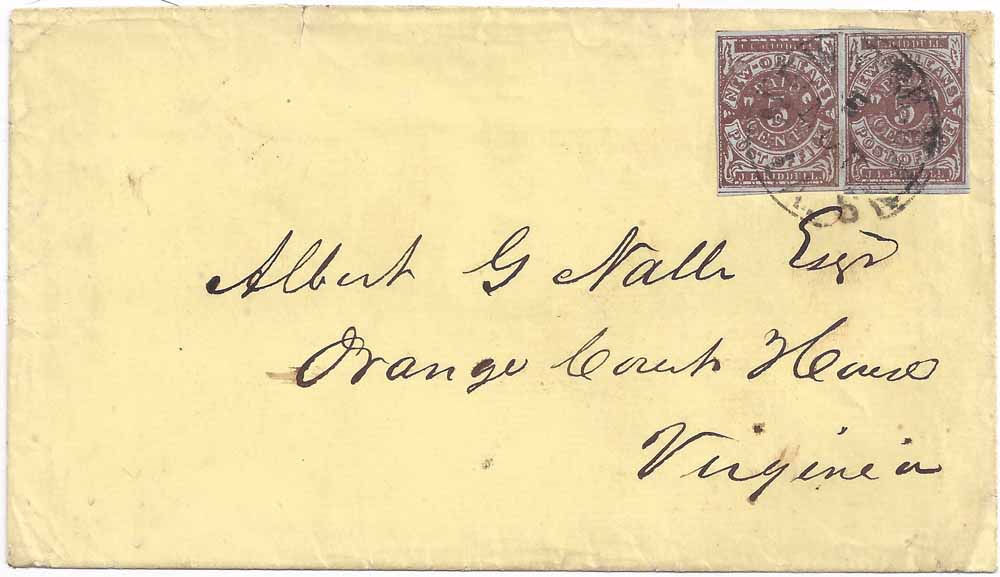 J.L.RIDDELL. J.L.RIDDELL.
NEW-ORLEANS NEW-ORLEANS
PAID
5 5
CENTS CENTS
POST-OFFICE POST-OFFICE
J.L.RIDDELL. J.L.RIDDELL.
Albert G Nalle Esqr
Orange Court House
Virginia